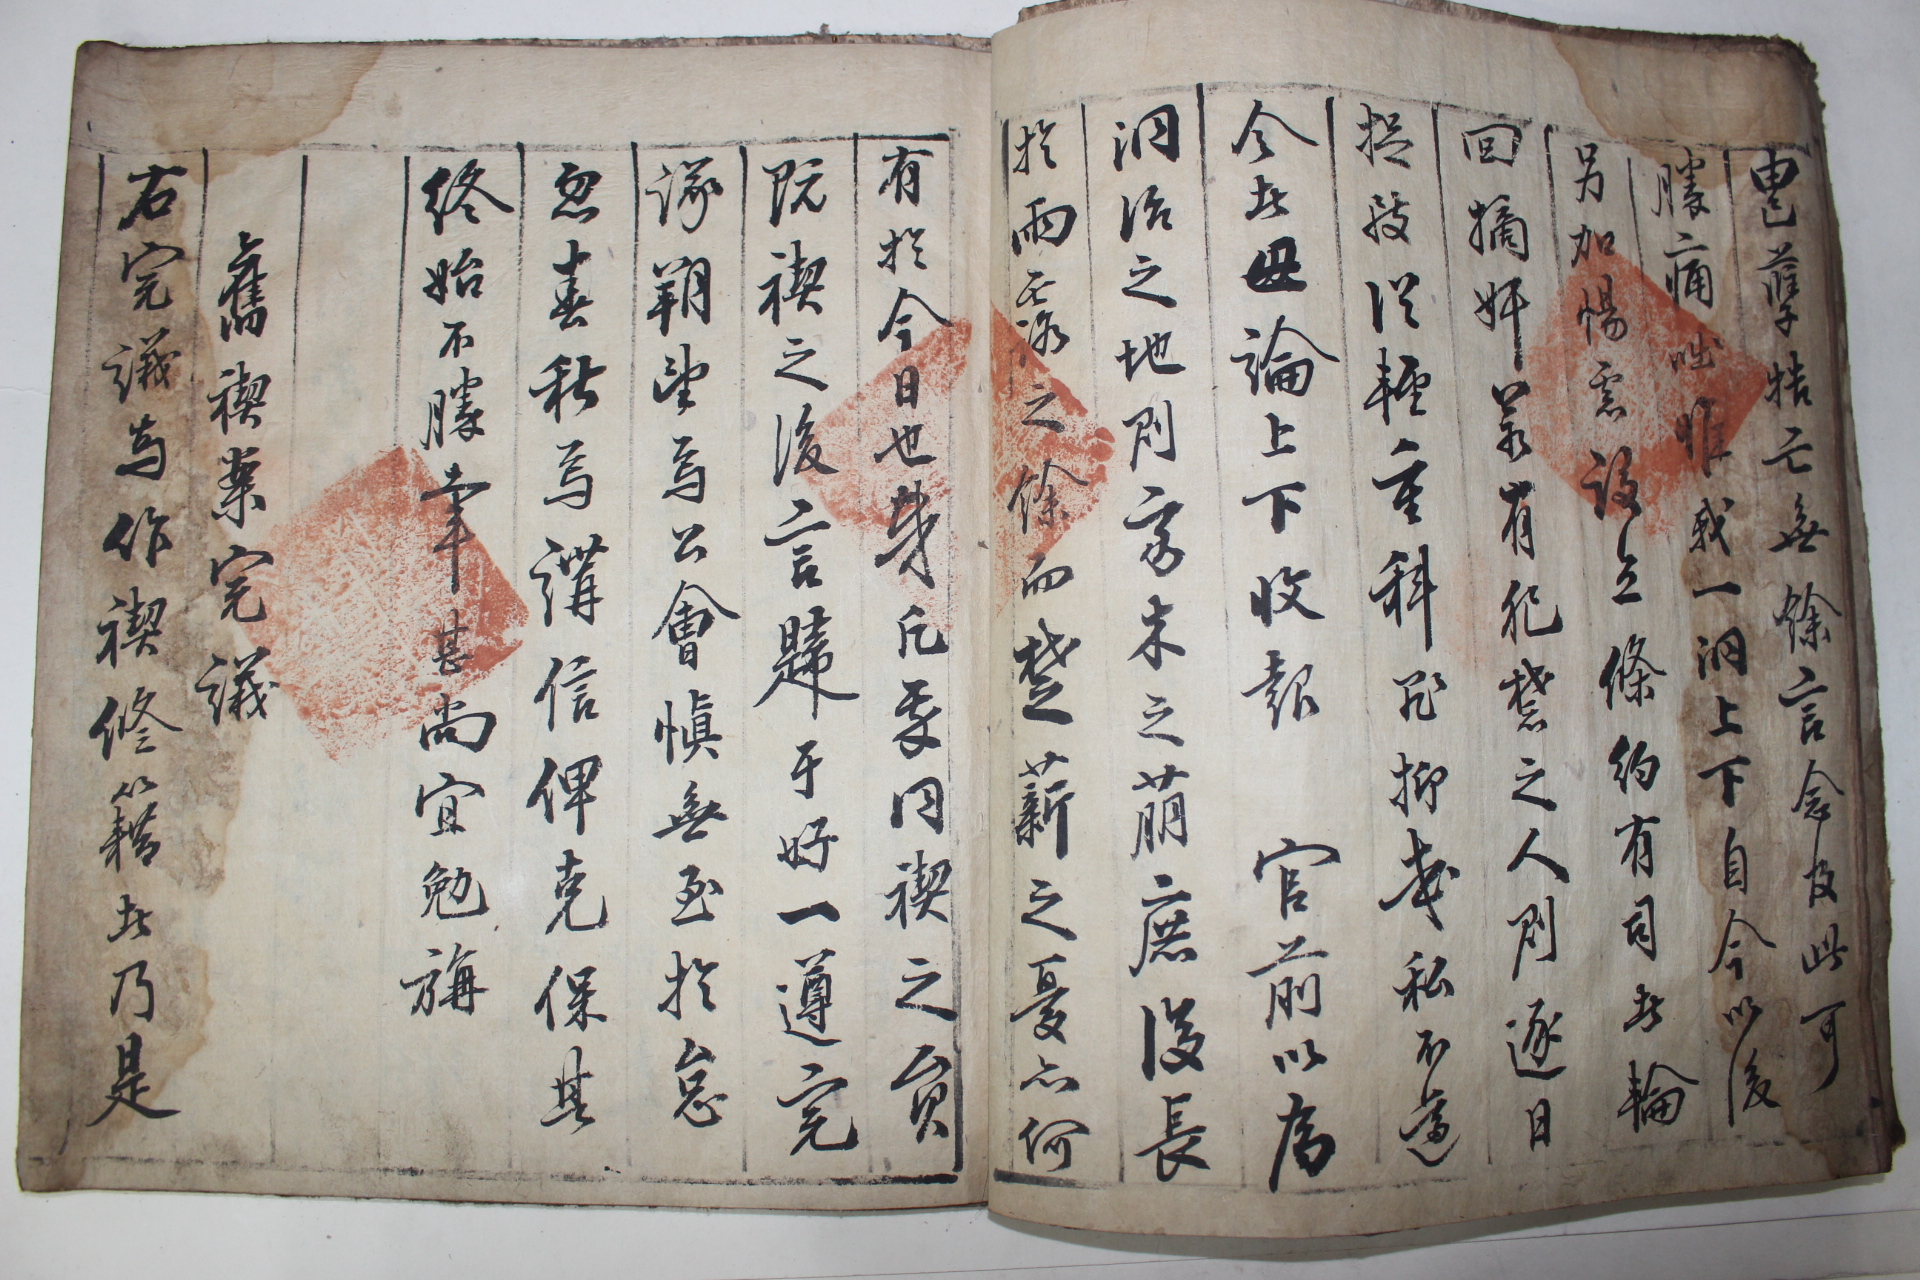 孽牿亡無餘言念及此可
勝痛咄惟我一洞上下自今以後
另加惕慮設立條約有司此輪
回摘奸若有犯禁之人則逐日
捉致從輕重科罪抑或私不當
今此毋論上下收報 官前以爲
洞治之地則家末之萌庶後長
於雨露之餘而楚薪之憂亦何
有於今日也哉凡我同禊之員
旣禊之後言歸于好一遵完
議朔望焉公會愼無至於怠
忽春秋焉講信俾克保其
終始不勝幸甚尚宜勉旃
舊禊案完議
右完議爲作禊修籍此乃是